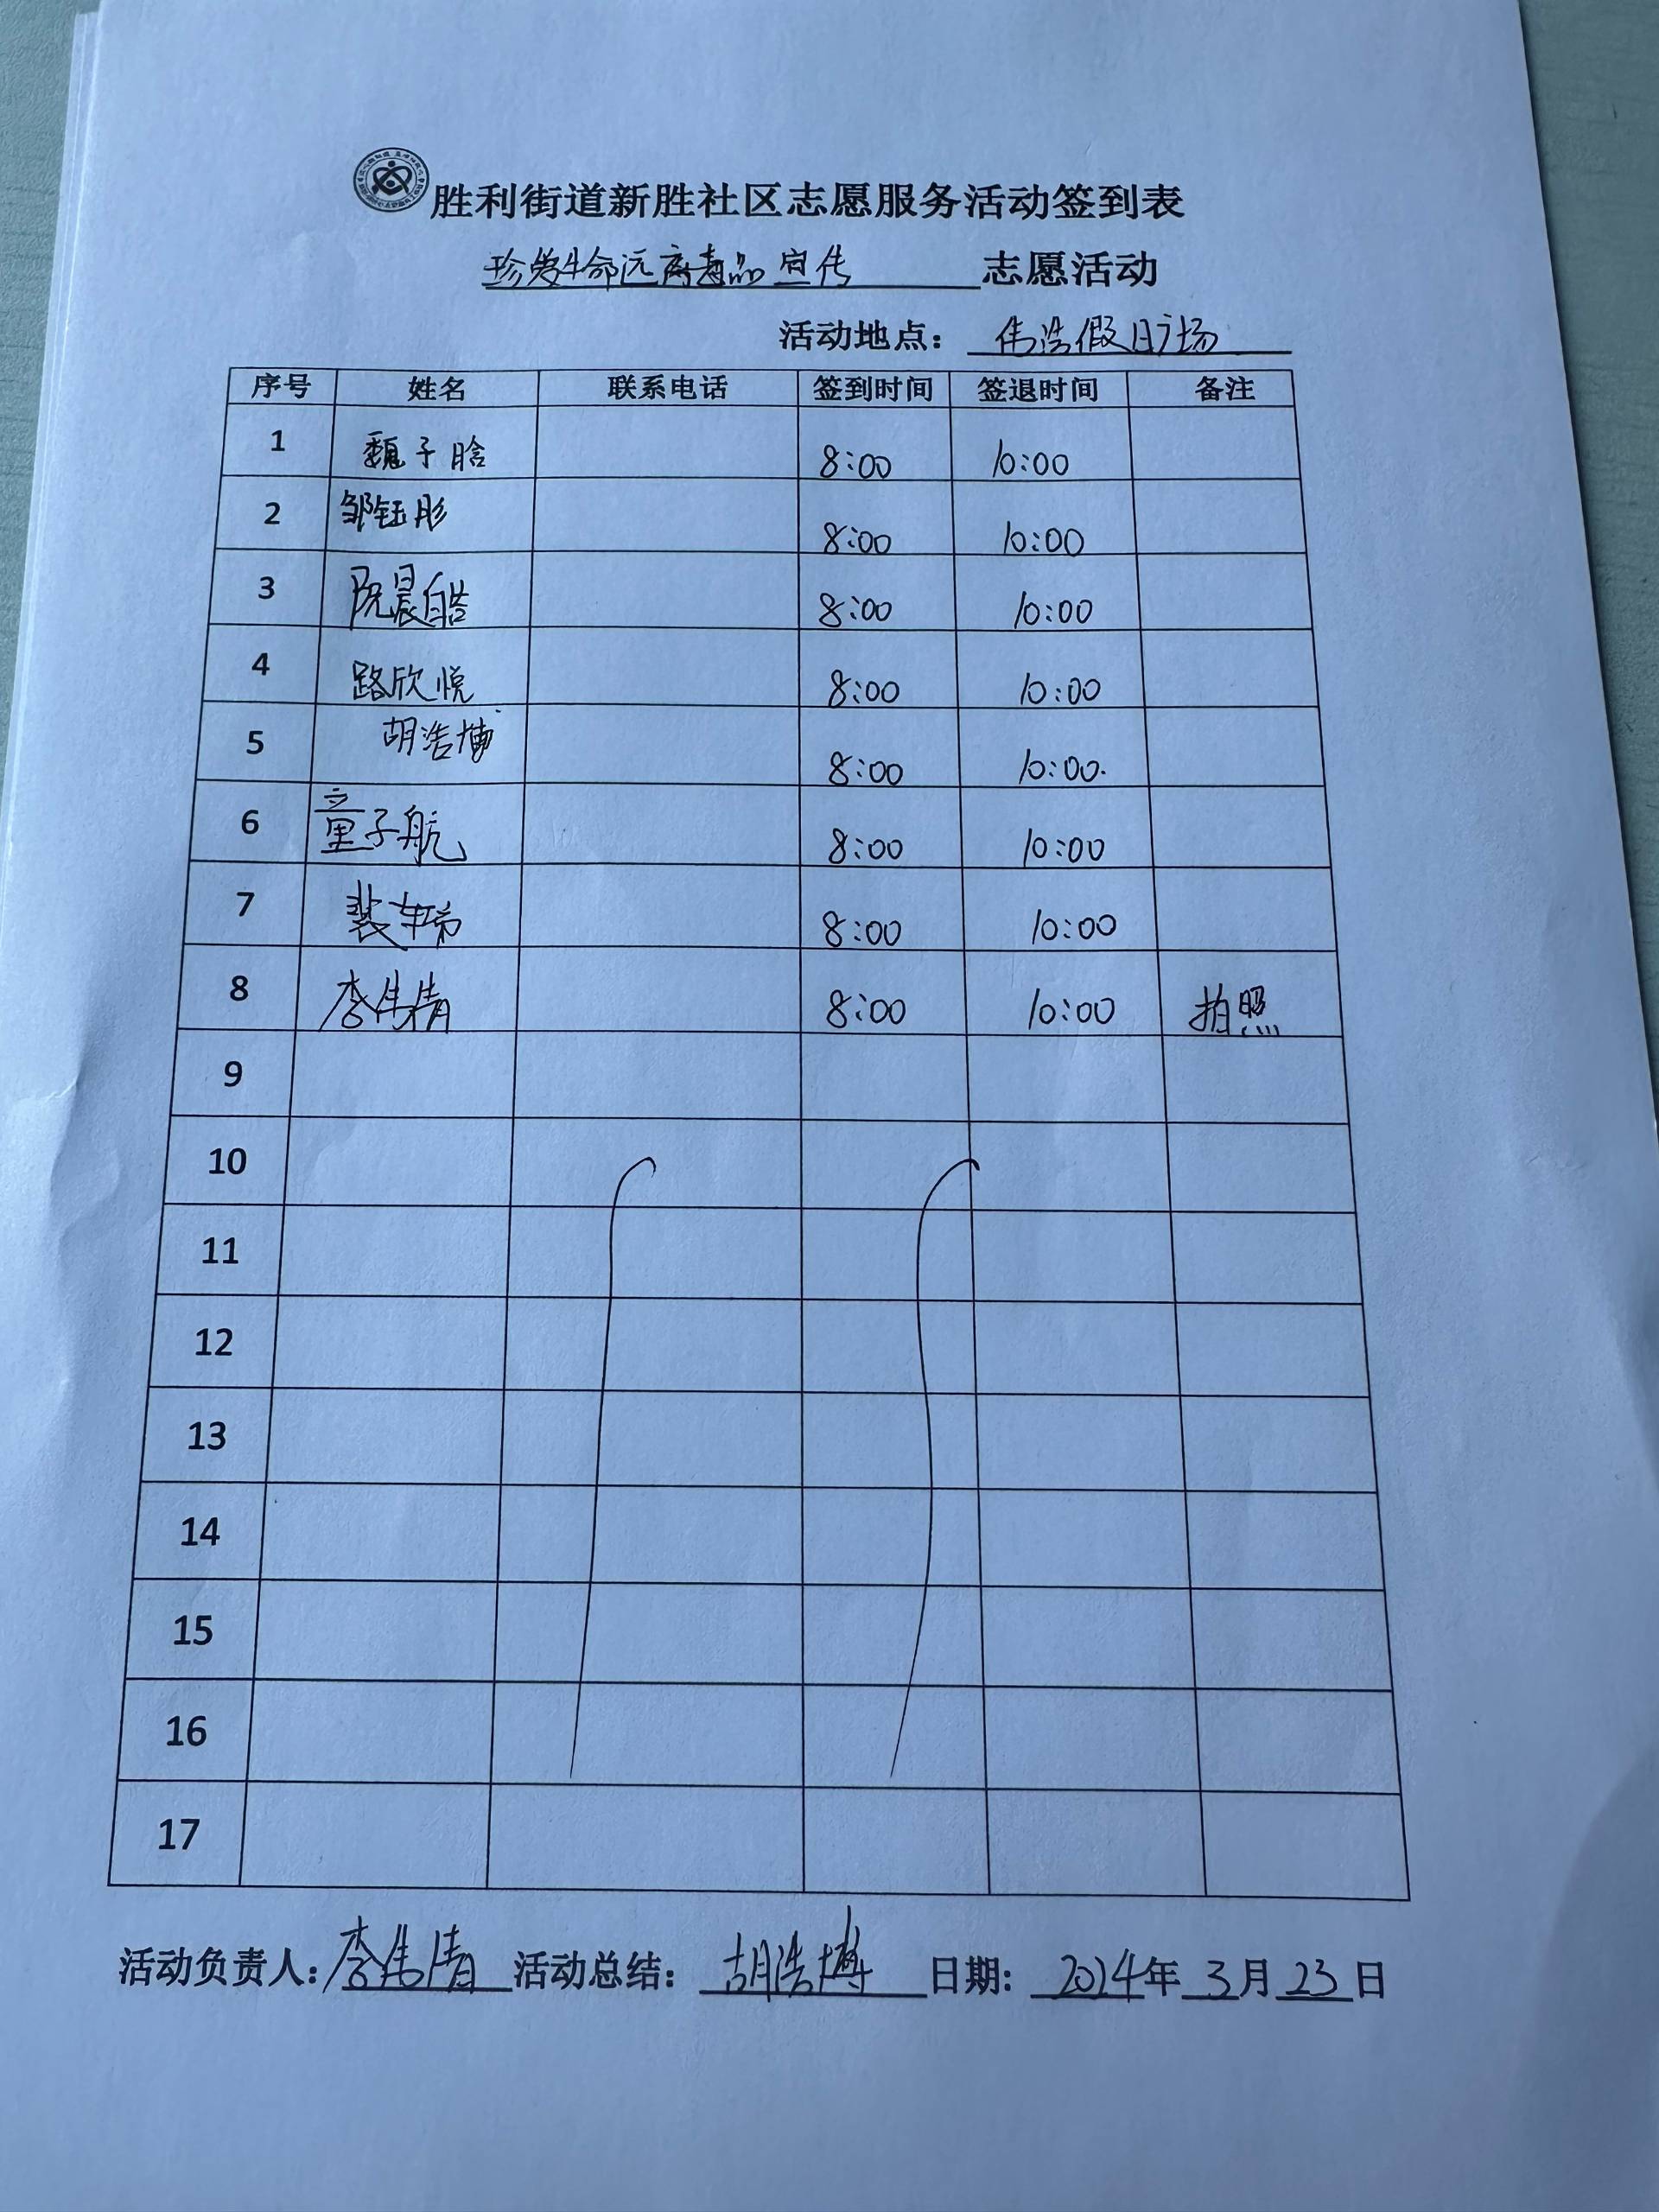 胜利街道新胜社区志愿服务活动签到表
珍爱生命远离毒品宣传 志愿活动
活动地点：伟浩假日广场
序号 姓名 联系电话 签到时间 签退时间 备注
1 魏子晗 8:00 10:00
2 邹钰彤 8:00 10:00
3 阮晨皓 8:00 10:00
4 路欣悦 8:00 10:00
5 胡浩博 8:00 10:00.
6 童子航 8:00 10:00
7 8:00 10:00
8 李伟倩 8:00 10:00 拍照
9
10
11
12
13
14
15
16
17
活动负责人：李伟倩 活动总结：胡浩博 日期：2024年3月23日